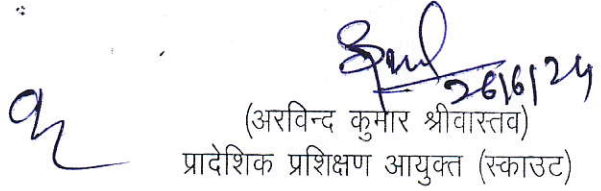 26/6/24
(अरविन्द कुमार श्रीवास्तव)
प्रादेशिक प्रशिक्षण आयुक्त (स्काउट)